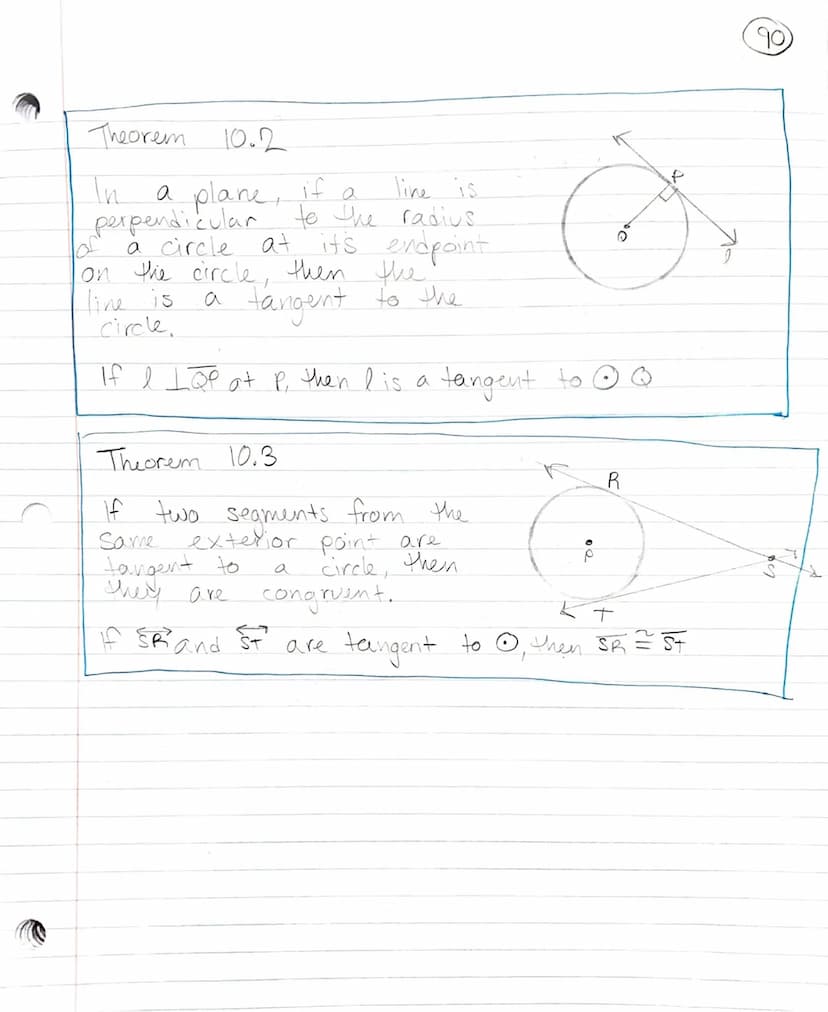 90
Theorem 10.2
In a plane, if a line is
perpendicular to the radius
of a circle at it's endpoint
on the circle, then the
line is a tangent to the
circle.
P
Q
l
If l ⊥ Q̅P̅ at P, then l is a tangent to ⊙ Q
Theorem 10.3
If two segments from the
same exterior point are
tangent to a circle, then
they are congruent.
R
P
S
T
If S͡R and S͡T are tangent to ⊙, then S̅R̅ ≅ S̅T̅